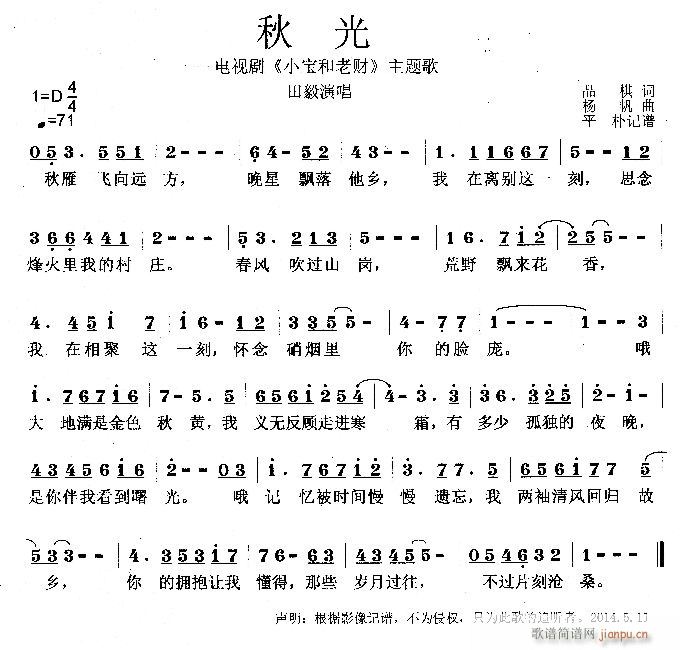 秋 光
电视剧《小宝和老财》主题歌
1=D 4/4
田毅演唱
品 棋 词
♩=71
杨 帆 曲
平 朴记谱
0 5 3. 5 5 1 2 - - 6 4 - 5 2 4 3 - - 1. 1 1 6 6 1 5 - - 1 2
秋雁 飞向远 方， 晚星 飘落 他乡， 我 在离别这一 刻， 思念
3 6 6 4 4 4 1 2 - - - 5 3. 5 3 5 1 2 - - - 1 6. 7 1 2 2 5 5 -
烽火里我的村 庄。 春风 吹过山 岗， 荒野 飘来花 香，
4. 4 5 1 7 1 6 - 1 2 3 3 5 5 - 4 - 7 7 1 - - - 1 - - 3
我 在相聚 这 一刻，怀念 硝烟里 你 的脸 庞。 哦
1. 7 6 7 1 6 7 - 5. 5 6 5 6 1 2 5 4 4 - 3. 3 3 6. 3 2 1 2 1 - - 2
大 地满是金色 秋 黄，我 义无反顾走进寒 霜，有 多少 孤独的 夜 晚，
4 3 4 5 6 1 6 2 - - 0 3 1. 7 6 7 1 6 3. 7 7. 3 6 5 6 1 7 7 5
是你伴我看到曙 光。 哦 记 忆被时间慢 慢 遗忘，我 两袖清风回归 故
5 3 3 - - 4. 3 5 3 1 7 7 6 - 6 3 4 3 4 5 - 0 5 4 6 3 2 1 - -
乡， 你 的拥抱让我 懂得，那些 岁月过往， 不过片刻沧 桑。
声明：根据影像记谱，不为侵权，只为此歌的追听者。2014.5.11
歌谱简谱网
jianpu.cn